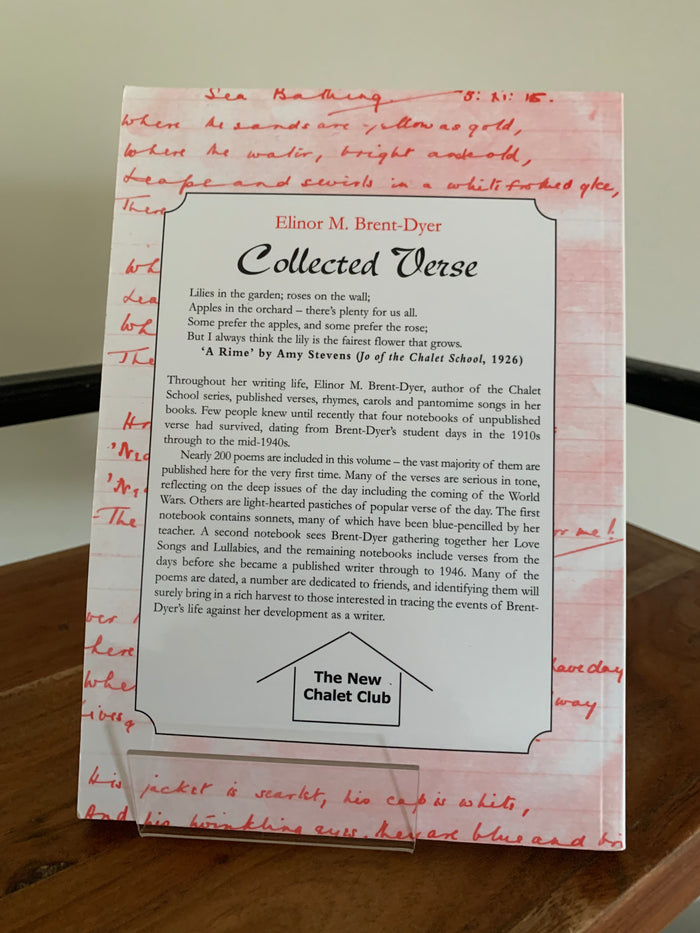 Sea Bathing. 5: XI: 15.
Where the sands are yellow as gold,
Where the water, bright and cold,
Leaps and swirls in a white
There
Elinor M. Brent-Dyer
Collected Verse
Wh
Lilies in the garden; roses on the wall;
Lea
Apples in the orchard – there's plenty for us all.
Some prefer the apples, and some prefer the rose;
Wh
But I always think the lily is the fairest flower that grows.
The
'A Rime' by Amy Stevens (Jo of the Chalet School, 1926)
Throughout her writing life, Elinor M. Brent-Dyer, author of the Chalet
School series, published verses, rhymes, carols and pantomime songs in her
books. Few people knew until recently that four notebooks of unpublished
verse had survived, dating from Brent-Dyer's student days in the 1910s
through to the mid-1940s.
Nearly 200 poems are included in this volume – the vast majority of them are
published here for the very first time. Many of the verses are serious in tone,
reflecting on the deep issues of the day including the coming of the World
Wars. Others are light-hearted pastiches of popular verse of the day. The first
notebook contains sonnets, many of which have been blue-pencilled by her
The
or me!
teacher. A second notebook sees Brent-Dyer gathering together her Love
Songs and Lullabies, and the remaining notebooks include verses from the
days before she became a published writer through to 1946. Many of the
poems are dated, a number are dedicated to friends, and identifying them will
surely bring in a rich harvest to those interested in tracing the events of Brent-
Dyer's life against her development as a writer.
here
have day
Whe
way
The New
Chalet Club
His jacket is scarlet, his cap is white,
And his twinkling eyes, they are blue and